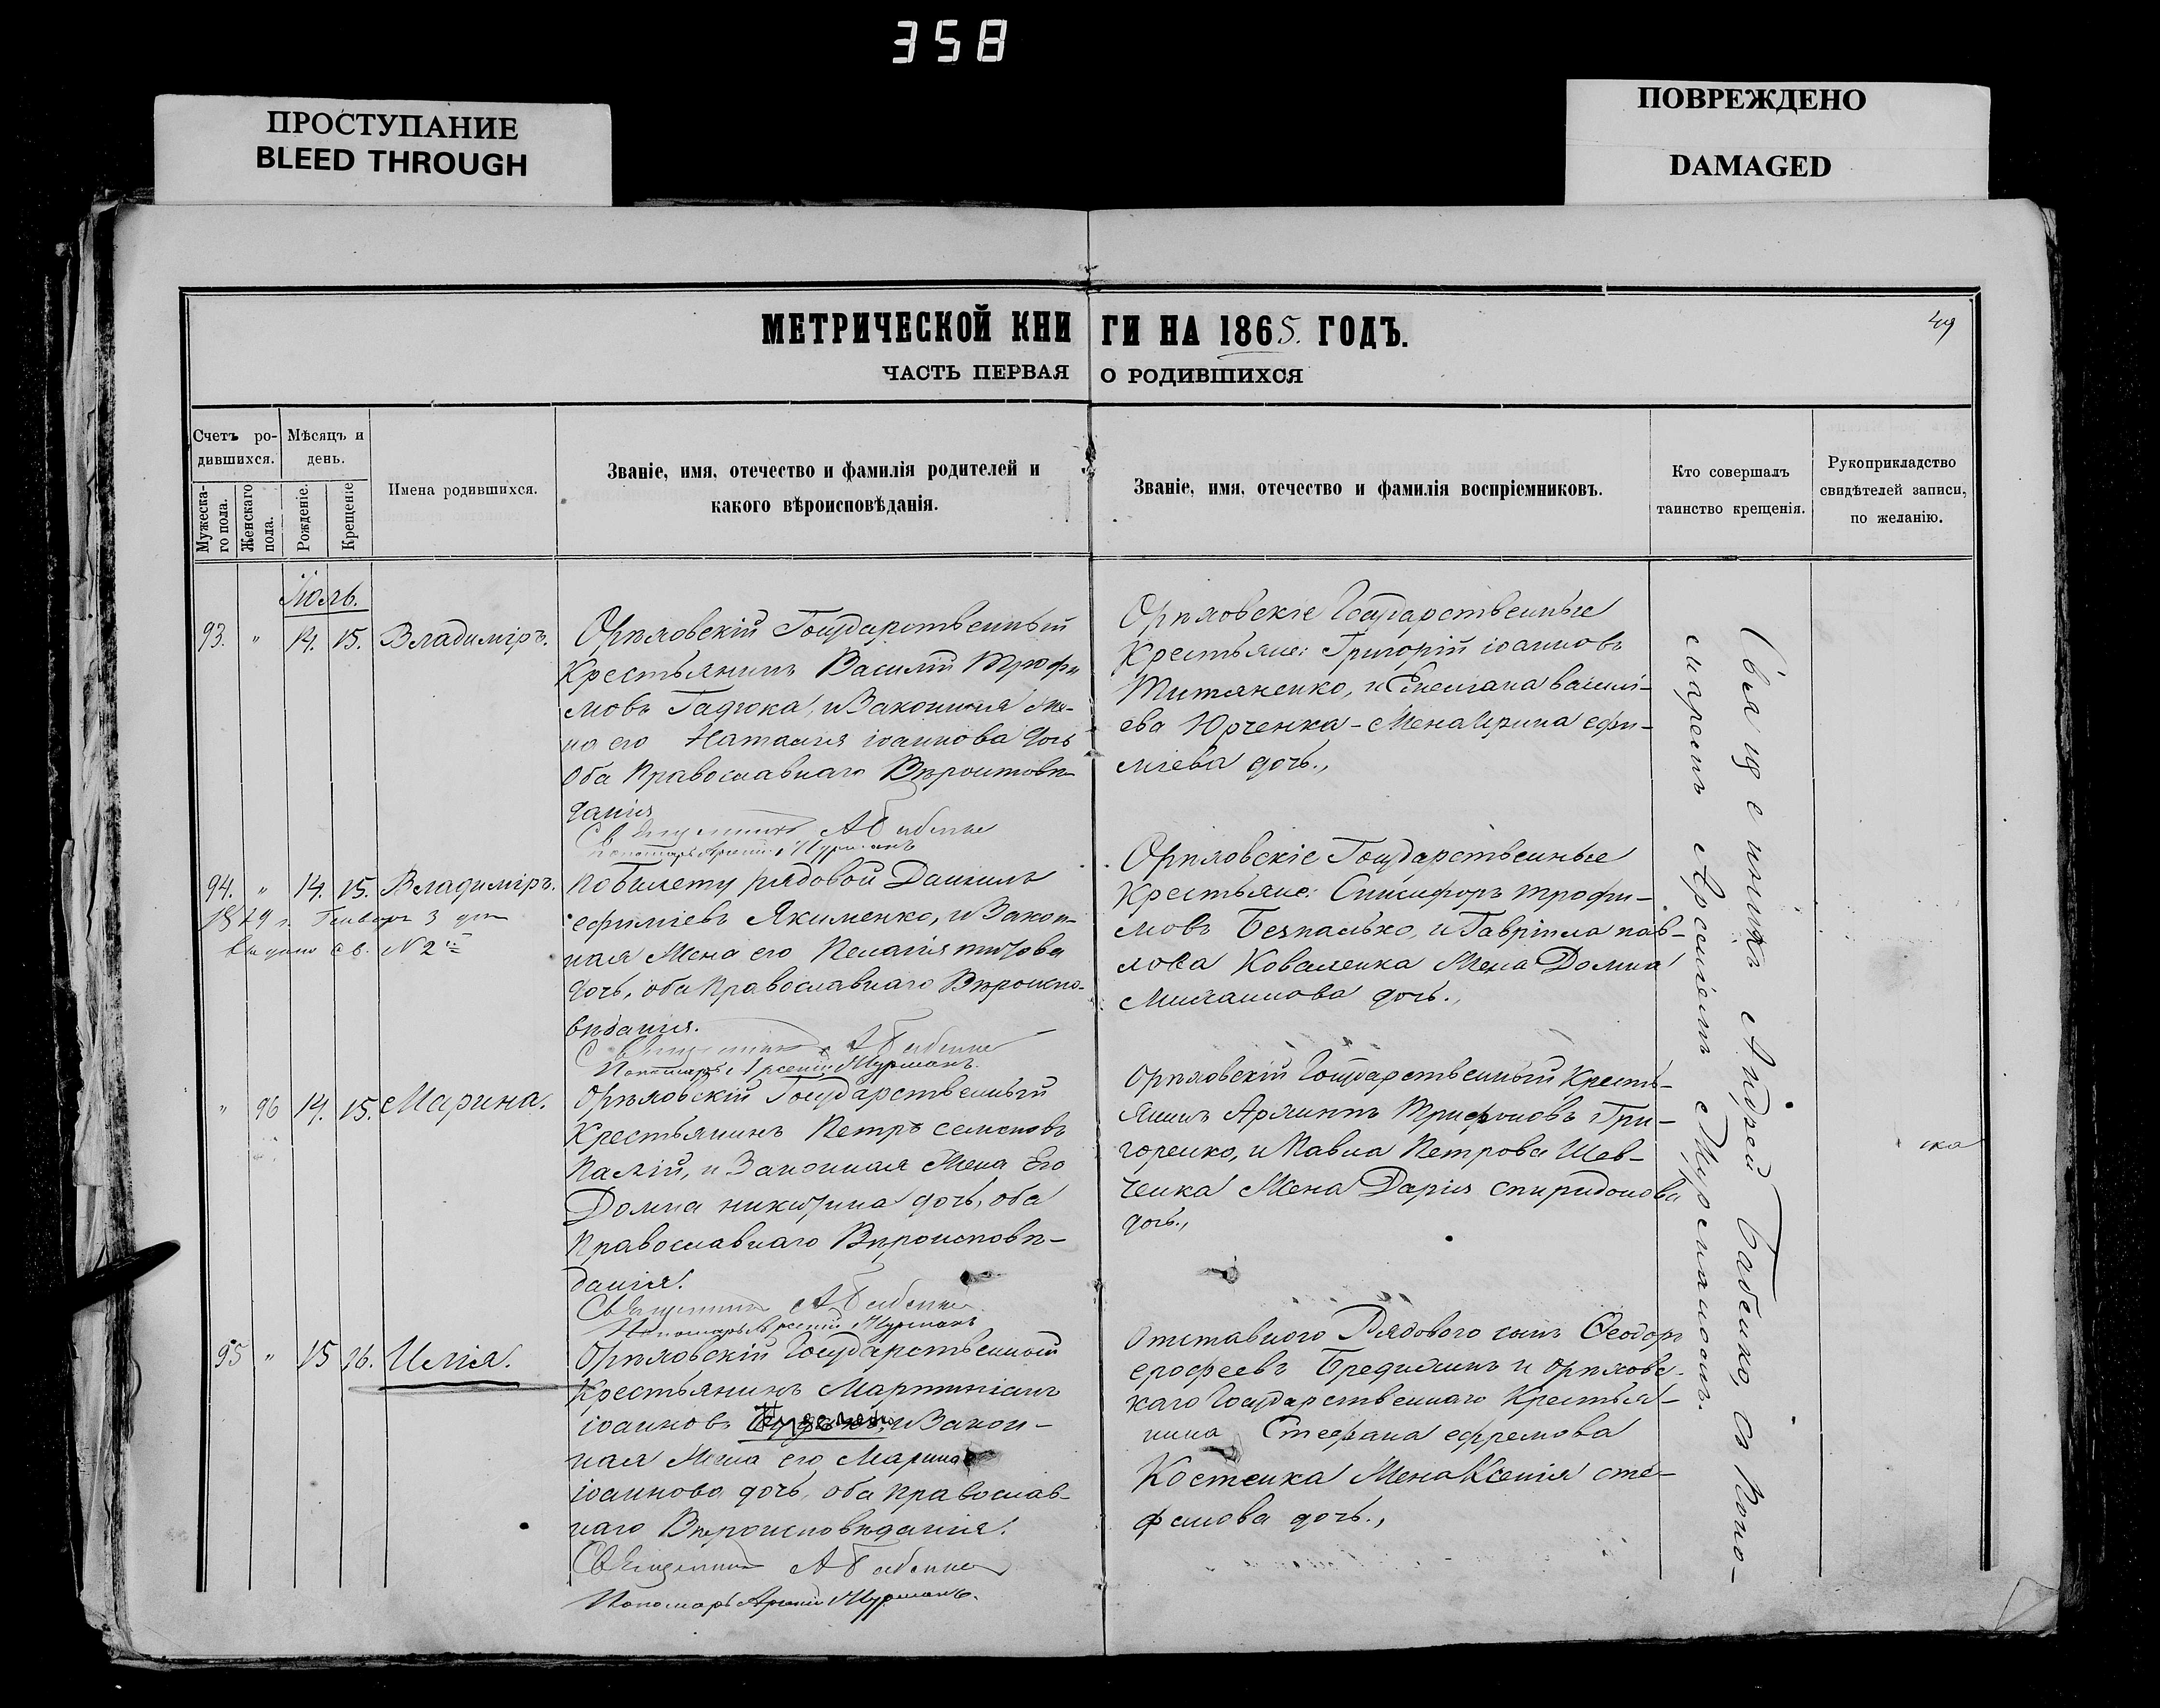 358
ПРОСТУПАНИЕ
BLEED THROUGH
ПОВРЕЖДЕНО
DAMAGED
МЕТРИЧЕСКОЙ КНИ ГИ НА 1865. ГОДЪ.
49
ЧАСТЬ ПЕРВАЯ О РОДИВШИХСЯ
Счетъ ро-
дившихся.
Мужеска-
го пола.
Женскаго
пола.
Мѣсяцъ и
день.
Рожденіе.
Крещеніе
Имена родившихся.
Званіе, имя, отечество и фамилія родителей и
какого вѣроисповѣданія.
Званіе, имя, отечество и фамилія воспріемниковъ.
Кто совершалъ
таинство крещенія.
Рукоприкладство
свидѣтелей записи,
по желанію.
Іюль.
93. " 14. 15. Владиміръ.
Орѣловскій Государственный
Крестьянинъ Василій Трофи
мовъ Гадюка, и Законная Же-
на его Наталія іоаннова дочь
Оба Православнаго Вѣроисповѣ-
данія
Священникъ А Бабенко
Пономарь Арсеній Мурманъ
Орѣловскіе Государственные
Крестьяне: Григорій іоанновъ
Титяненко, и Емеліана василі-
ева Юрченка - Жена Ирина ефи-
міева дочь.,
94. " 14. 15. Владиміръ.
1879 г. Генваря 3 дня
выдано св. N 2
по билету рядовой Даніилъ
ефиміевъ Якименко, и Закон-
ная Жена его Пелагія титова
дочь, оба Православнаго Вѣроиспо-
вѣданія.
Священникъ А Бабенко
Пономарь Арсеній Мурманъ.
Орѣловскіе Государственные
Крестьяне: Никифоръ трофи-
мовъ Безпалько, и Гавріила пав-
лова Коваленка Жена Домна
дочь.,
" 96 14. 15. Марина.
Орѣловскій Государственный
Крестьянинъ Петръ семеновъ
Палій, и Законная Жена Его
Домна никитина дочь, оба
Православнаго Вѣроисповѣ-
данія.
Священникъ А Бабенко
Пономарь Арсеній Мурманъ
Орѣловскій Государственный Кресть-
янинъ Трифоновъ Гри-
горенко, и Павла Петрова Шев-
ченка Жена Дарія спиридонова
дочь.,
95 " 15 16. Илія.
Орѣловскій Государственный
Крестьянинъ Мартиніанъ
іоанновъ и Закон-
ная Жена его Марина
іоаннова дочь, оба православ-
наго Вѣроисповѣданія.
Священникъ А Бабенко
Пономарь Арсеній Мурманъ.
Отставного Рядового сынъ Ѳеодоръ
ерофеевъ Бредихинъ и орѣловс-
каго Государственнаго Крестья-
нина Стефана ефремова
Костенка Жена Ксенія сте-
фанова дочь.,
Священникъ Андрей Бабенко, съ Поно-
маремъ Арсеніемъ Мурманомъ.